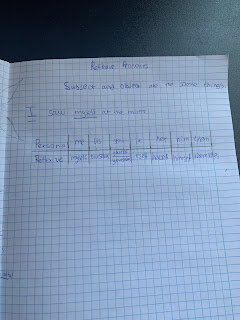 Reflexive Pronouns
Subject and object are the same things
I saw myself at the mirror.
Personal me us you it her him them
Reflexive myself ourselves yourself yourselves itself herself himself themselves